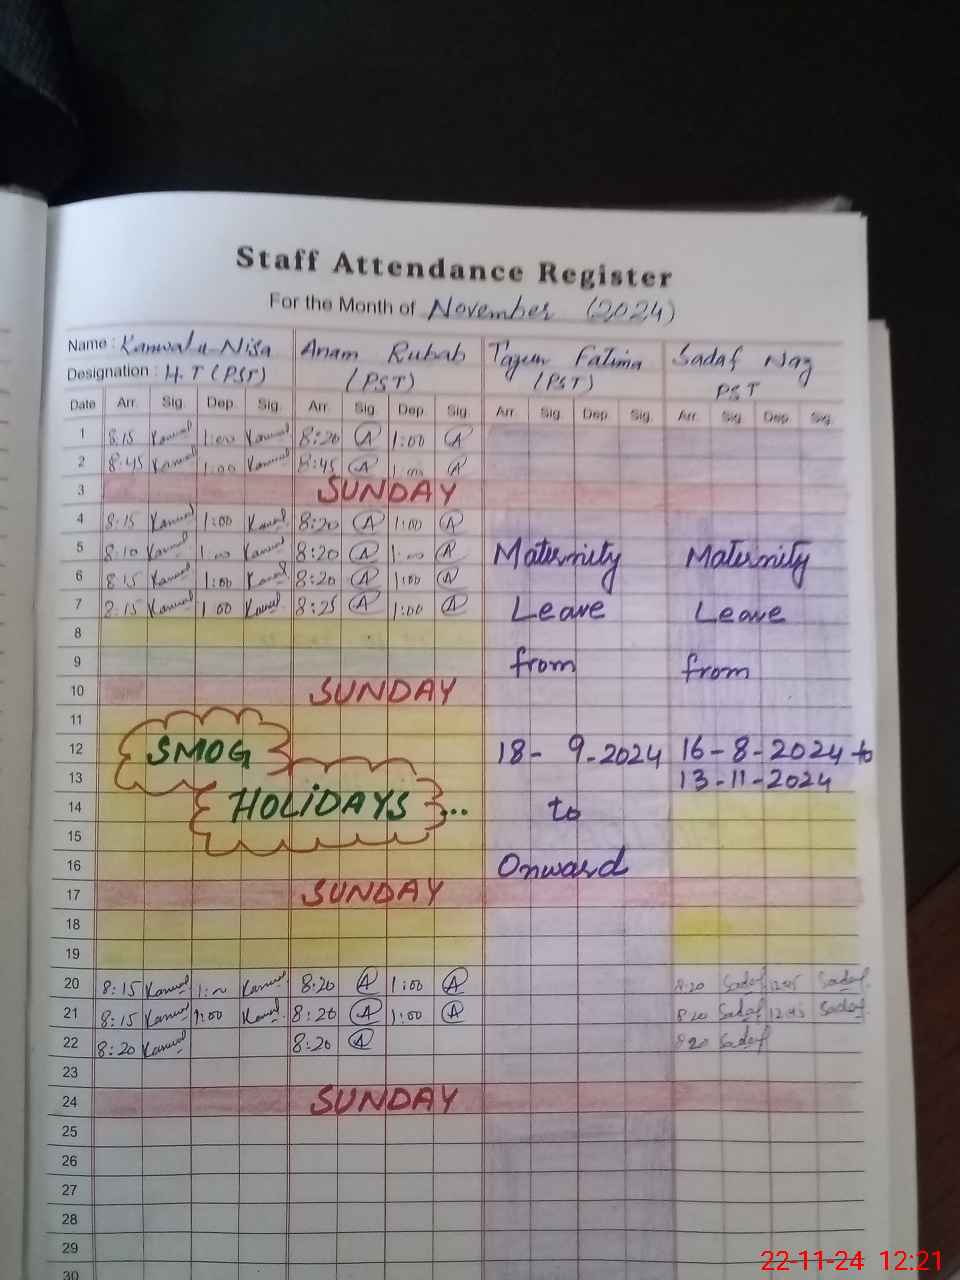 Staff Attendance Register
For the Month of November (2024)
Name : Kanwal-u-Nisa Anam Rubab Tayun Fatima Sadaf Naz
Designation : H.T (PST) (PST) (PST) PST
Date Arr. Sig. Dep. Sig. Arr. Sig. Dep. Sig. Arr. Sig. Dep. Sig. Arr. Sig. Dep. Sig.
1 8:15 Kanwal 1:00 Kanwal 8:20 A 1:00 A
2 8:45 Kanwal 1:00 Kanwal 8:45 A 1:00 A
3 SUNDAY
4 8:15 Kanwal 1:00 Kanwal 8:20 A 1:00 A
5 8:10 Kanwal 1:00 Kanwal 8:20 A 1:00 A Maternity Maternity
6 8:15 Kanwal 1:00 Kanwal 8:20 A 1:00 A
7 8:15 Kanwal 1:00 Kanwal 8:25 A 1:00 A Leave Leave
8
9 from from
10 SUNDAY
11
12 SMOG 18-9-2024 16-8-2024 to
13 13-11-2024
14 HOLIDAYS... to
15
16 Onward
17 SUNDAY
18
19
20 8:15 Kanwal 1:00 Kanwal 8:20 A 1:00 A 8:20 Sadaf 12:45 Sadaf
21 8:15 Kanwal 1:00 Kanwal 8:20 A 1:00 A 8:20 Sadaf 12:45 Sadaf
22 8:20 Kanwal 8:20 A 8:20 Sadaf
23
24 SUNDAY
25
26
27
28
29
30
22-11-24 12:21